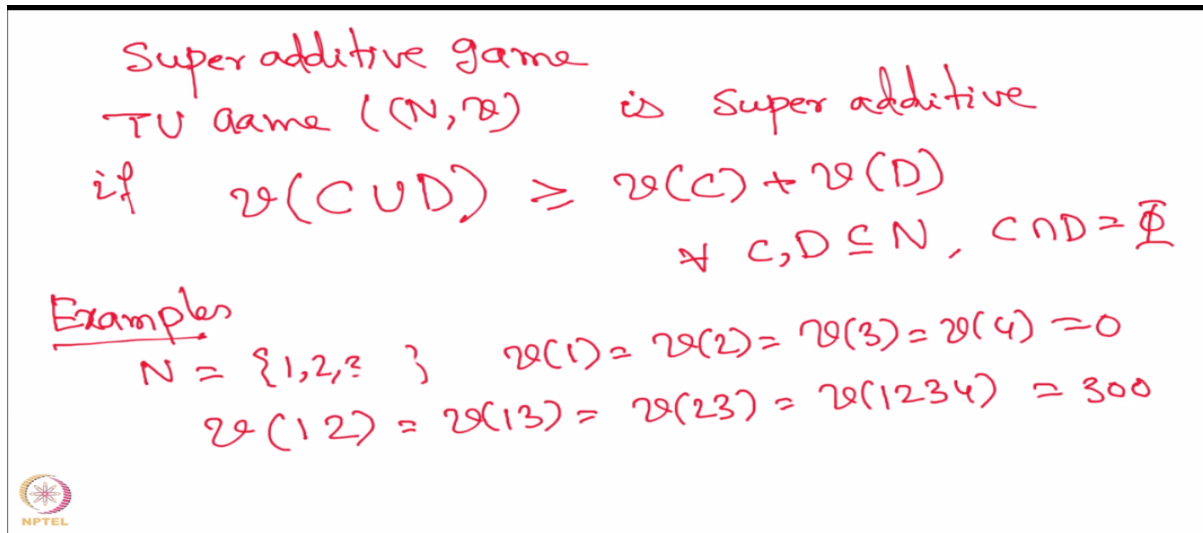 Super additive game
TU Game ((N, v) is super additive
if v(C ∪ D) ≥ v(C) + v(D)
∀ C, D ⊆ N, C ∩ D = Φ
Examples
N = {1,2,3 } v(1) = v(2) = v(3) = v(4) = 0
v(12) = v(13) = v(23) = v(1234) = 300
NPTEL